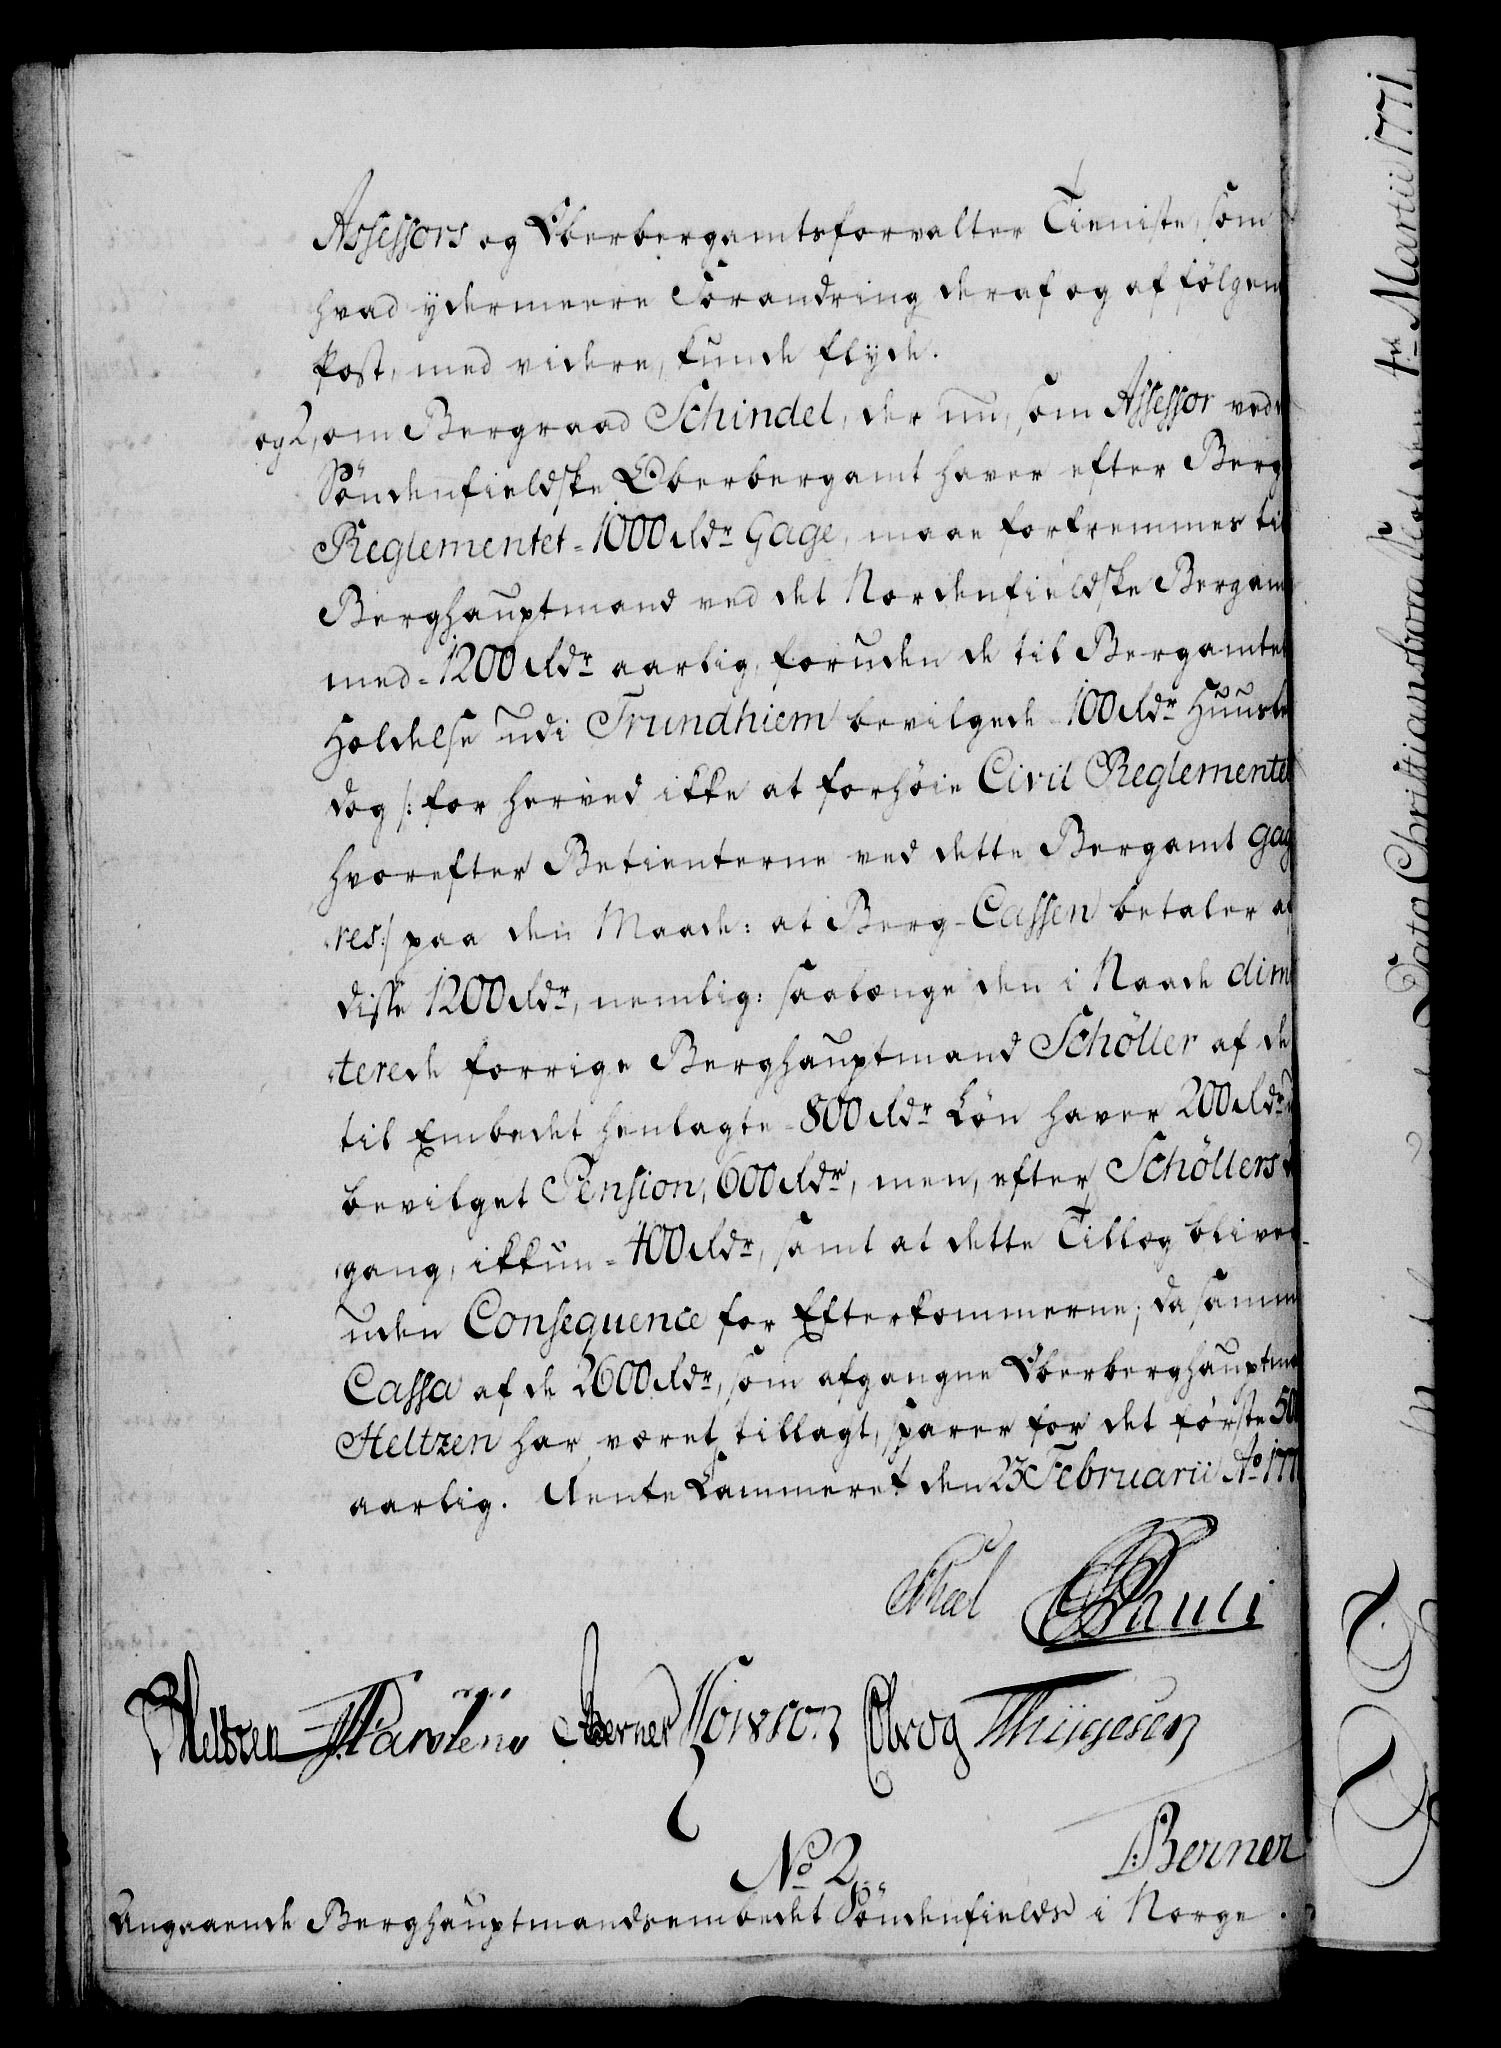 Assessors og Oberbergamtsforvalter Tieniste, som
hvad ydermeere Forandring deraf og af følgen
Post, med videre, kunde flyde.
og 2, om Bergraad Schindel, der nu, som Assessor ved
Söndenfieldske Oberbergamt haver efter Berg
Reglementet - 1000 Rdr Gage, maae forfremmes til
Berghauptmand ved det Nordenfieldske Bergam
med - 1200 Rdr aarlig, foruden de til Bergamtet
Holdelse udi Trundhiem bevilgede - 100 Rdr Huusle
dog /: for herved ikke at forhöie Civil Reglemente
hvorefter Betienterne ved dette Bergamt gag
res :/ paa den Maade: at Berg-Cassen betaler af
disse 1200 Rdr, nemlig: saalænge den i Naade dimi
terede forrige Berghauptmand Schöller af de
til Embedet henlagte - 800 Rdr Lön haver 200 Rdr
bevilget Pension, 600 Rdr, men, efter Schöllers
gang, ikkun - 400 Rdr, samt at dette Tillæg bliver
uden Consequence for Efterkommerne; da samm
Cassa af de 2600 Rdr, som afgangne Oberberghauptma
Heltzen har været tillagt, sparer for det förste 50
aarlig. Rente Kammeret den 23 Februarii Ao 177
Skeel Pauli
Heltzen Berner Cbrog Thÿgesen
No 2
Berner
Angaaende Berghauptmandsembedet Söndenfields i Norge.
Dato Christiansborg Slot den 1te Martii 1771